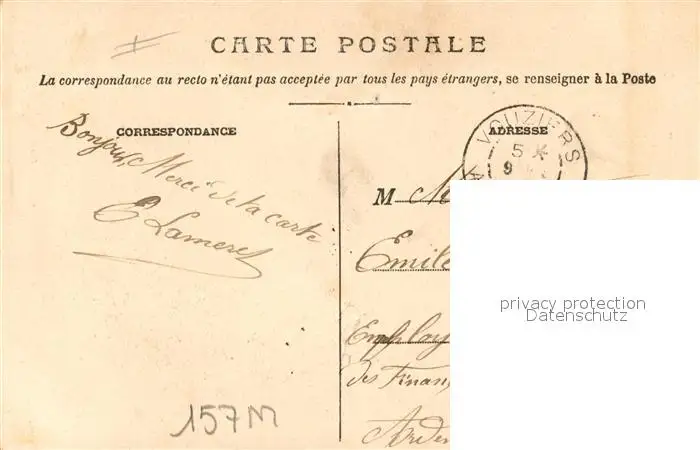 CARTE POSTALE
La correspondance au recto n'étant pas acceptée par tous les pays étrangers, se renseigner à la Poste
CORRESPONDANCE
Bonjour, Merci de la carte
E Lameret
157M
ADRESSE
VOUZIERS
5 *
9
M
Emile
Employ
des Finan
Arden
privacy protection
Datenschutz